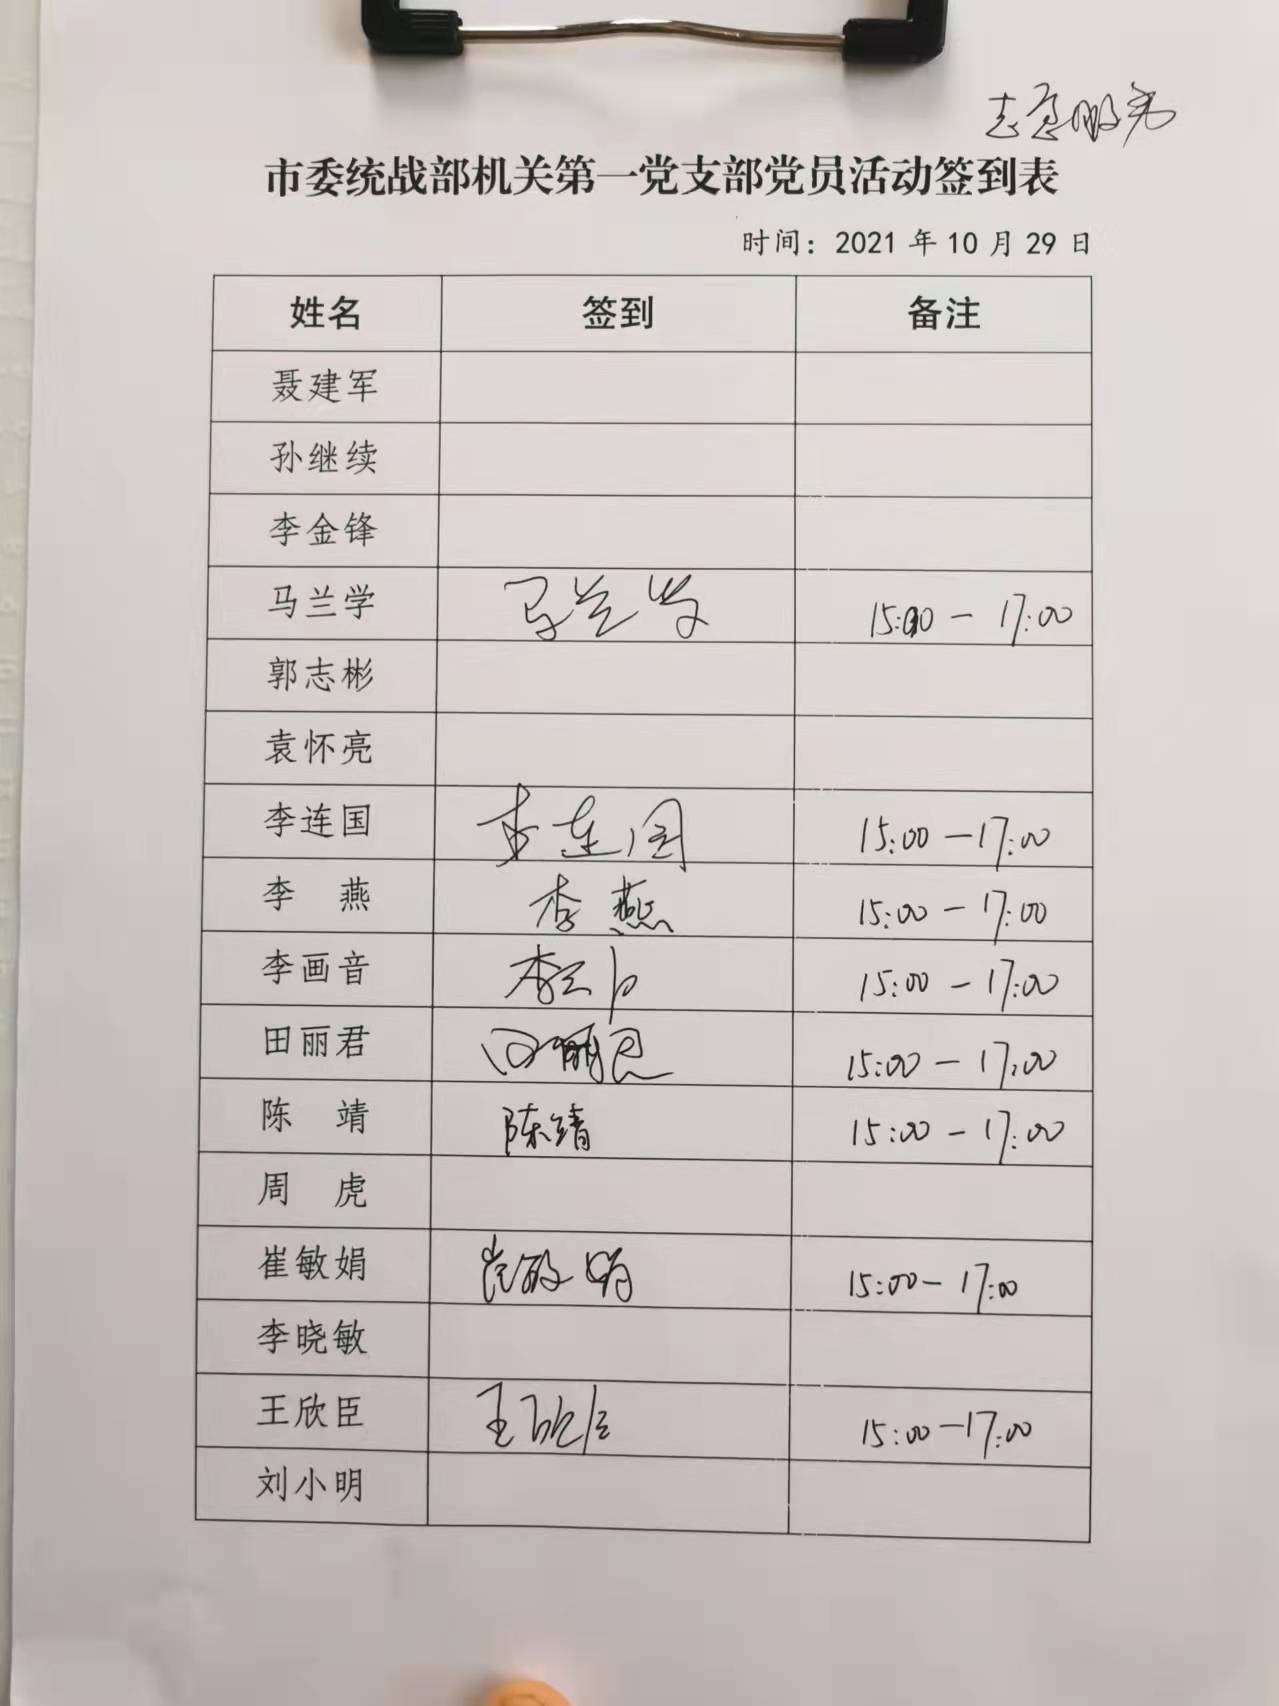 志愿服务
市委统战部机关第一党支部党员活动签到表
时间：2021 年 10 月 29 日
姓名 签到 备注
聂建军
孙继续
李金锋
马兰学 马兰学 15:00 — 17:00
郭志彬
袁怀亮
李连国 李连国 15:00 — 17:00
李 燕 李燕 15:00 — 17:00
李画音 15:00 — 17:00
田丽君 田丽君 15:00 — 17:00
陈 靖 陈靖 15:00 — 17:00
周 虎
崔敏娟 崔敏娟 15:00 — 17:00
李晓敏
王欣臣 王欣臣 15:00 — 17:00
刘小明